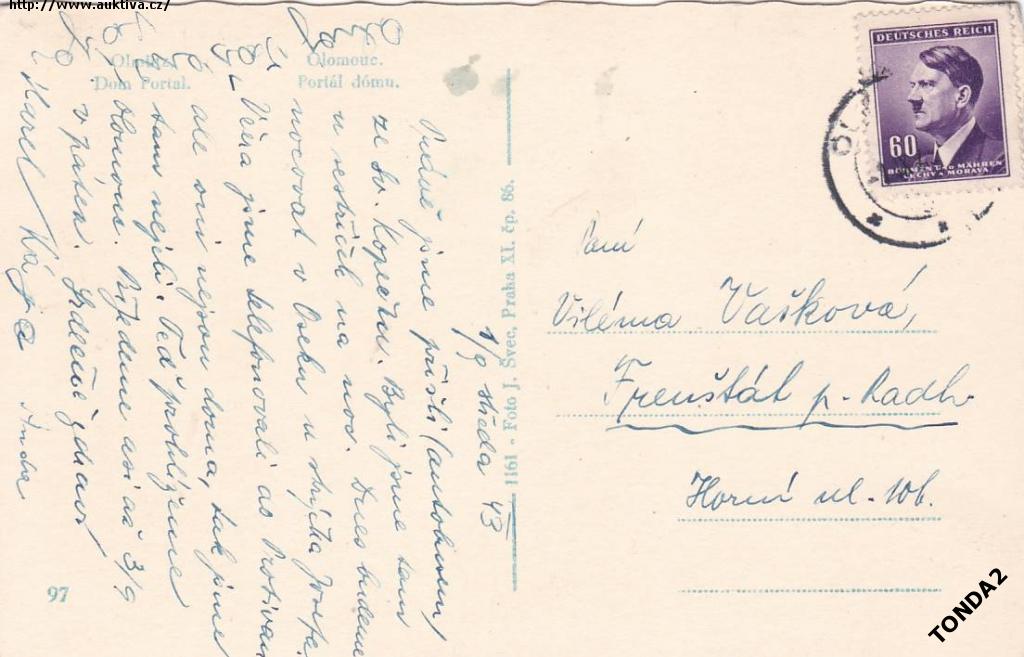 http://www.auktiva.cz/
Dom Portal.
Olomouc.
Portál dómu.
1/9 středa 43
jsme přišli (autobusem)
ze Sv. Kopečku. Byli jsme tam
u sestřiček na noc. Dnes budeme
nocovat v Oseku u strýčka Josefa.
Včera jsme telefonovali do
ale oni nejsou doma, tak jsme
tam nejeli. Teď prohlížíme
Olomouc. Přijedeme asi až 3/9
v pátek. Srdečně zdraví
Karel
1161 - Foto J. Švec, Praha XI. čp. 86.
97
DEUTSCHES REICH
60
BÖHMEN u MÄHREN
ČECHY a MORAVA
Paní
Viléma Vašková,
Frenštát p. Radh.
Horní ul. 106.
TONDA2